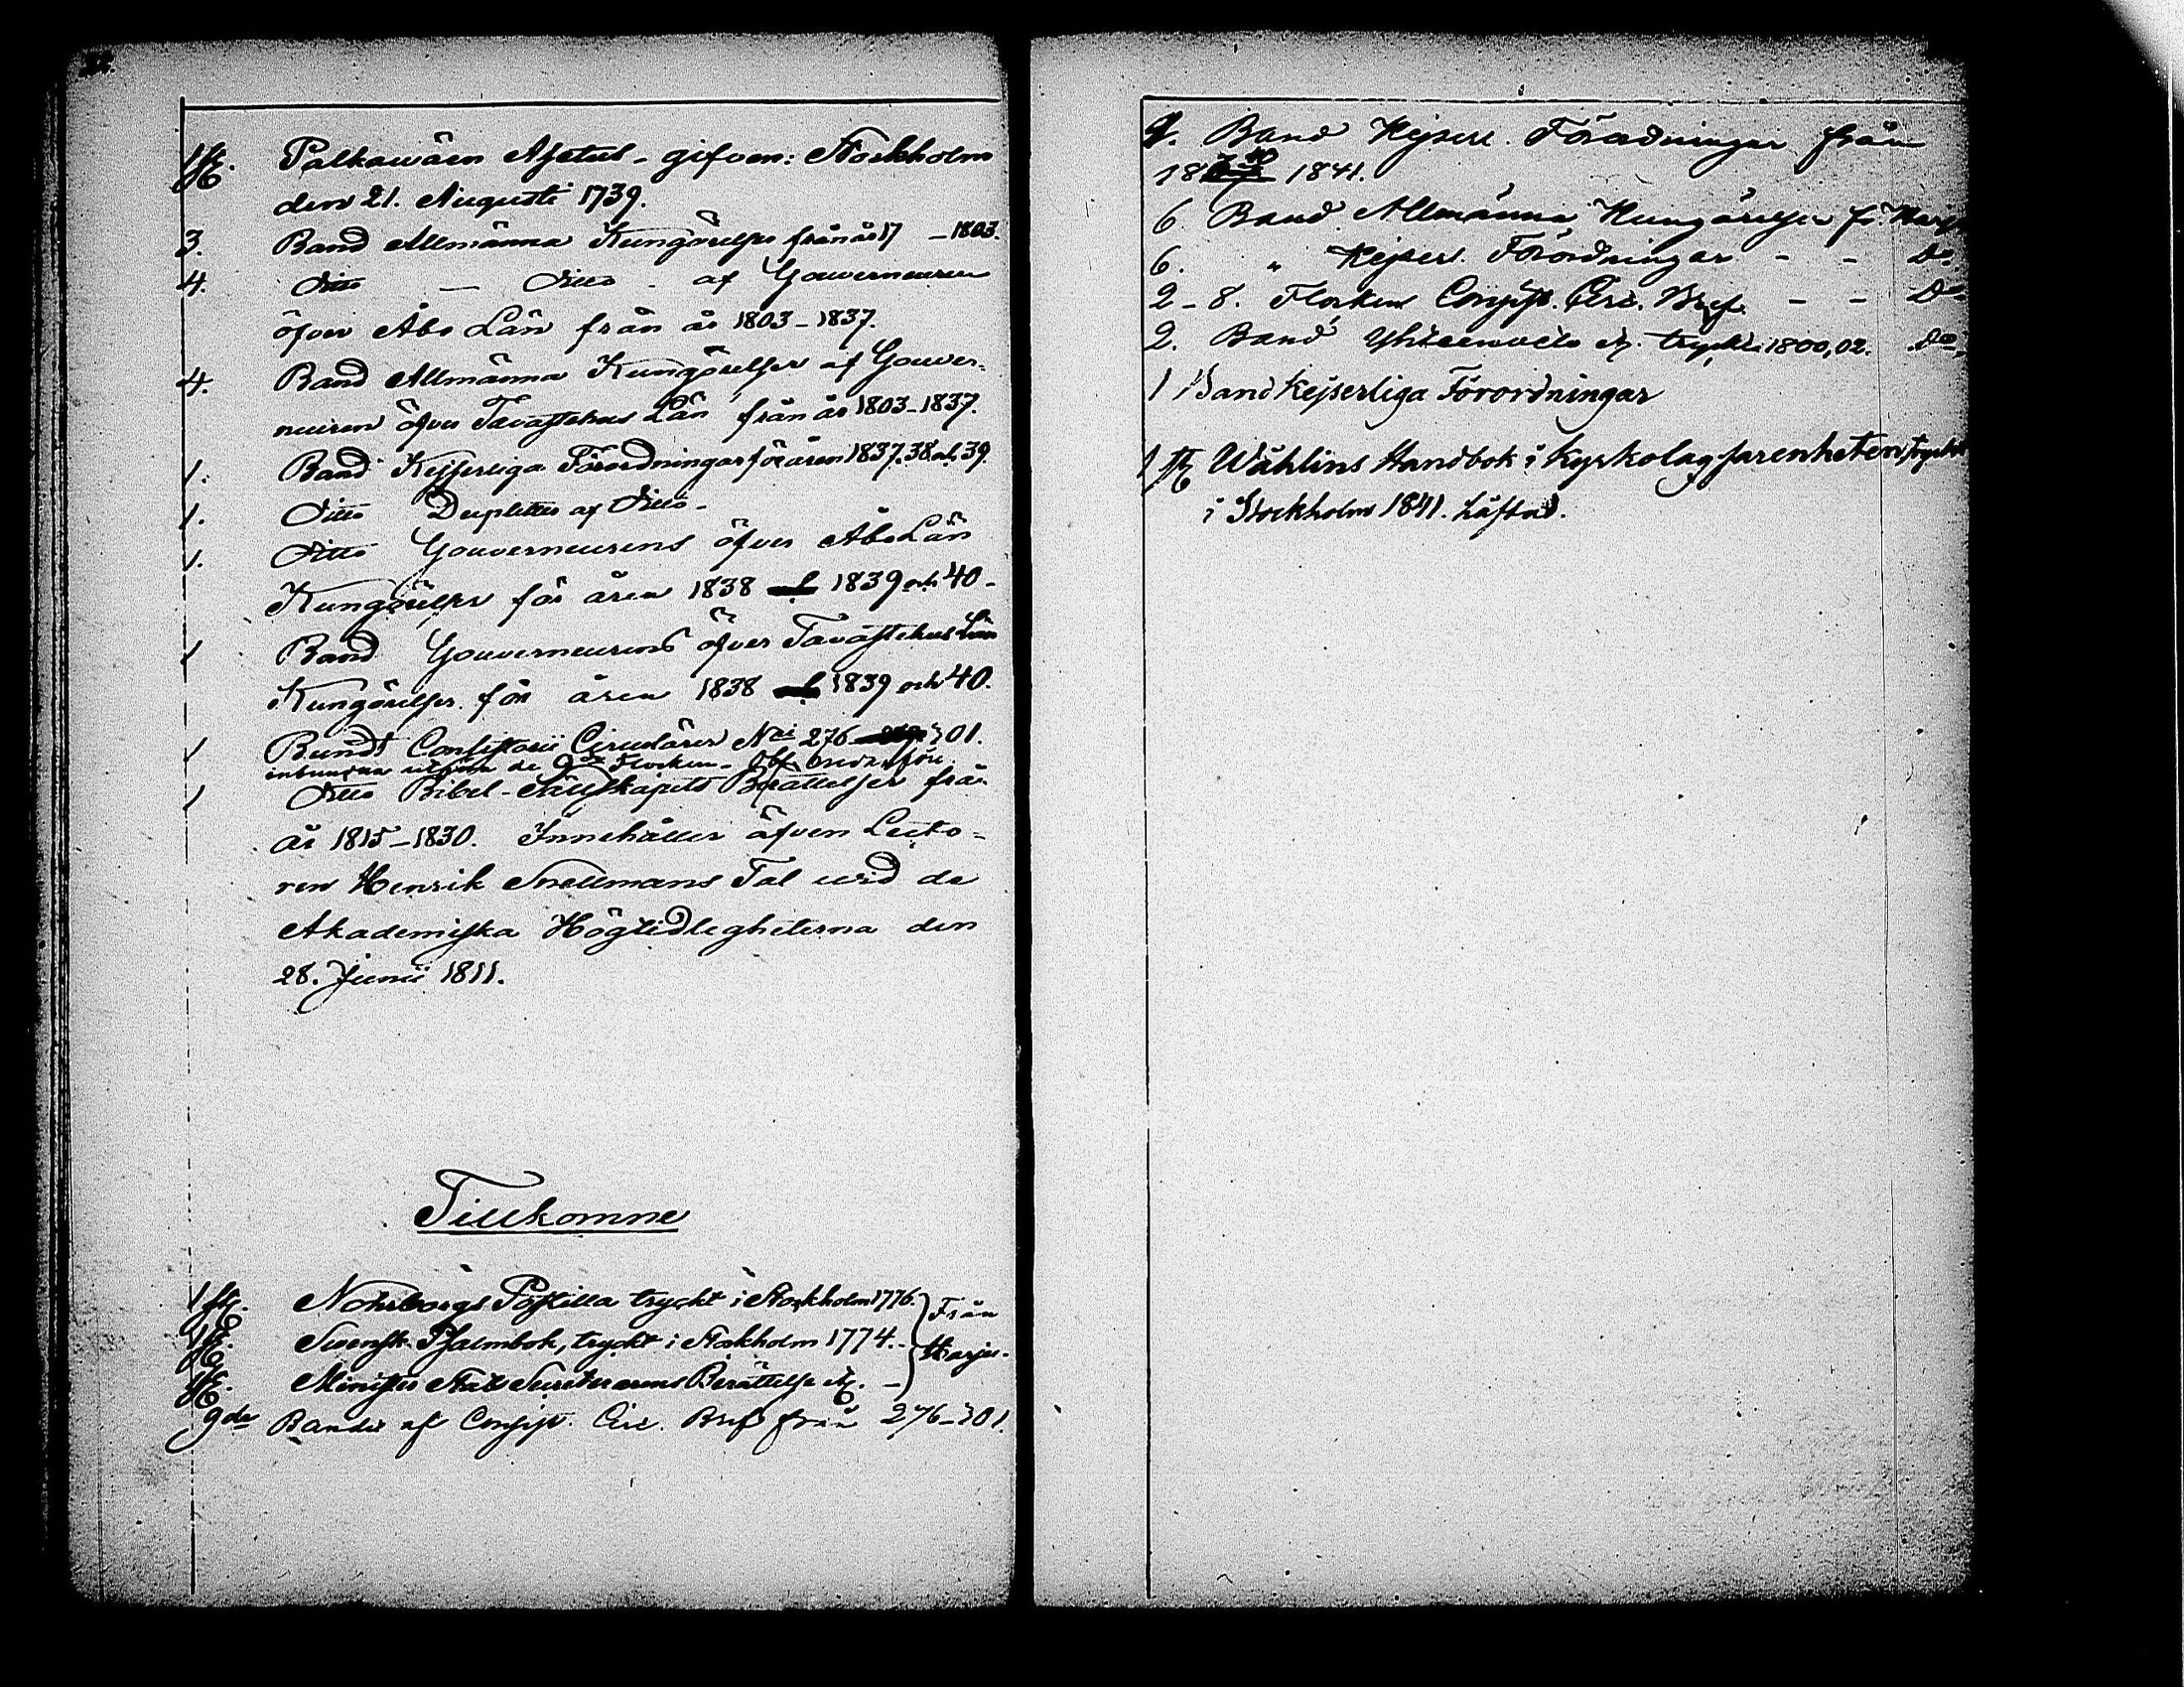 1 st. Palkawäen Asetus - gifven: Stockholm
den 21. Augusti 1739.
3. Band Allmänna Kungörelser från år 17 - 1803.
4. Ditto — Ditto - af Gouverneuren
öfver Åbo Län från år 1803-1837.
4. Band Allmänna Kungörelser af Gouver-
neuren öfver Tavastehus Län från år 1803-1837.
1. Band Kejserliga Förordningar för åren 1837. 38. och 39.
1. Ditto Dupletter af Ditto -
1. Ditto Gouverneurens öfver Åbo Län
Kungörelser för åren 1838 1839 och 40 -
1 Band Gouverneurens öfver Tavastehus Län
Kungörelser för åren 1838 1839 och 40.
1 Bundt Consistorii Circulärer N 276 301.
de 9 Flocken -
1 Ditto Bibel-Sällskapets Berättelser från
år 1815-1830. Innehåller äfven Lecto-
ren Henrik Snellmans Tal wid de
Akademiska Högtidlegheterna den
28. Junii 1811.
Tillkomne
1 st. Nohrborgs Postilla tryckt i Stockholm 1776. Från
1 st. Svensk Psalmbok, tryckt i Stockholm 1774. - Harju -
1 st. Minister Stats Secreterarens Berättelse -
9de Bandet af Consist. Circ. Bref från 276-301.
9. Band Kejserl. Förordningar från
18 1841.
6 Band Allmänna Kungörelser fr.
6. " Kejserl. Förordningar - - Do
2-8. Flocken Consist. Circ. Bref - - Do
2. Band Yhteenveto 1800, 02. Do
1 Band Kejserliga Förordningar
1 st Wåhlins Handbok i Kyrkolagfarenheten, tryckt
i Stockholm 1841. häftad.